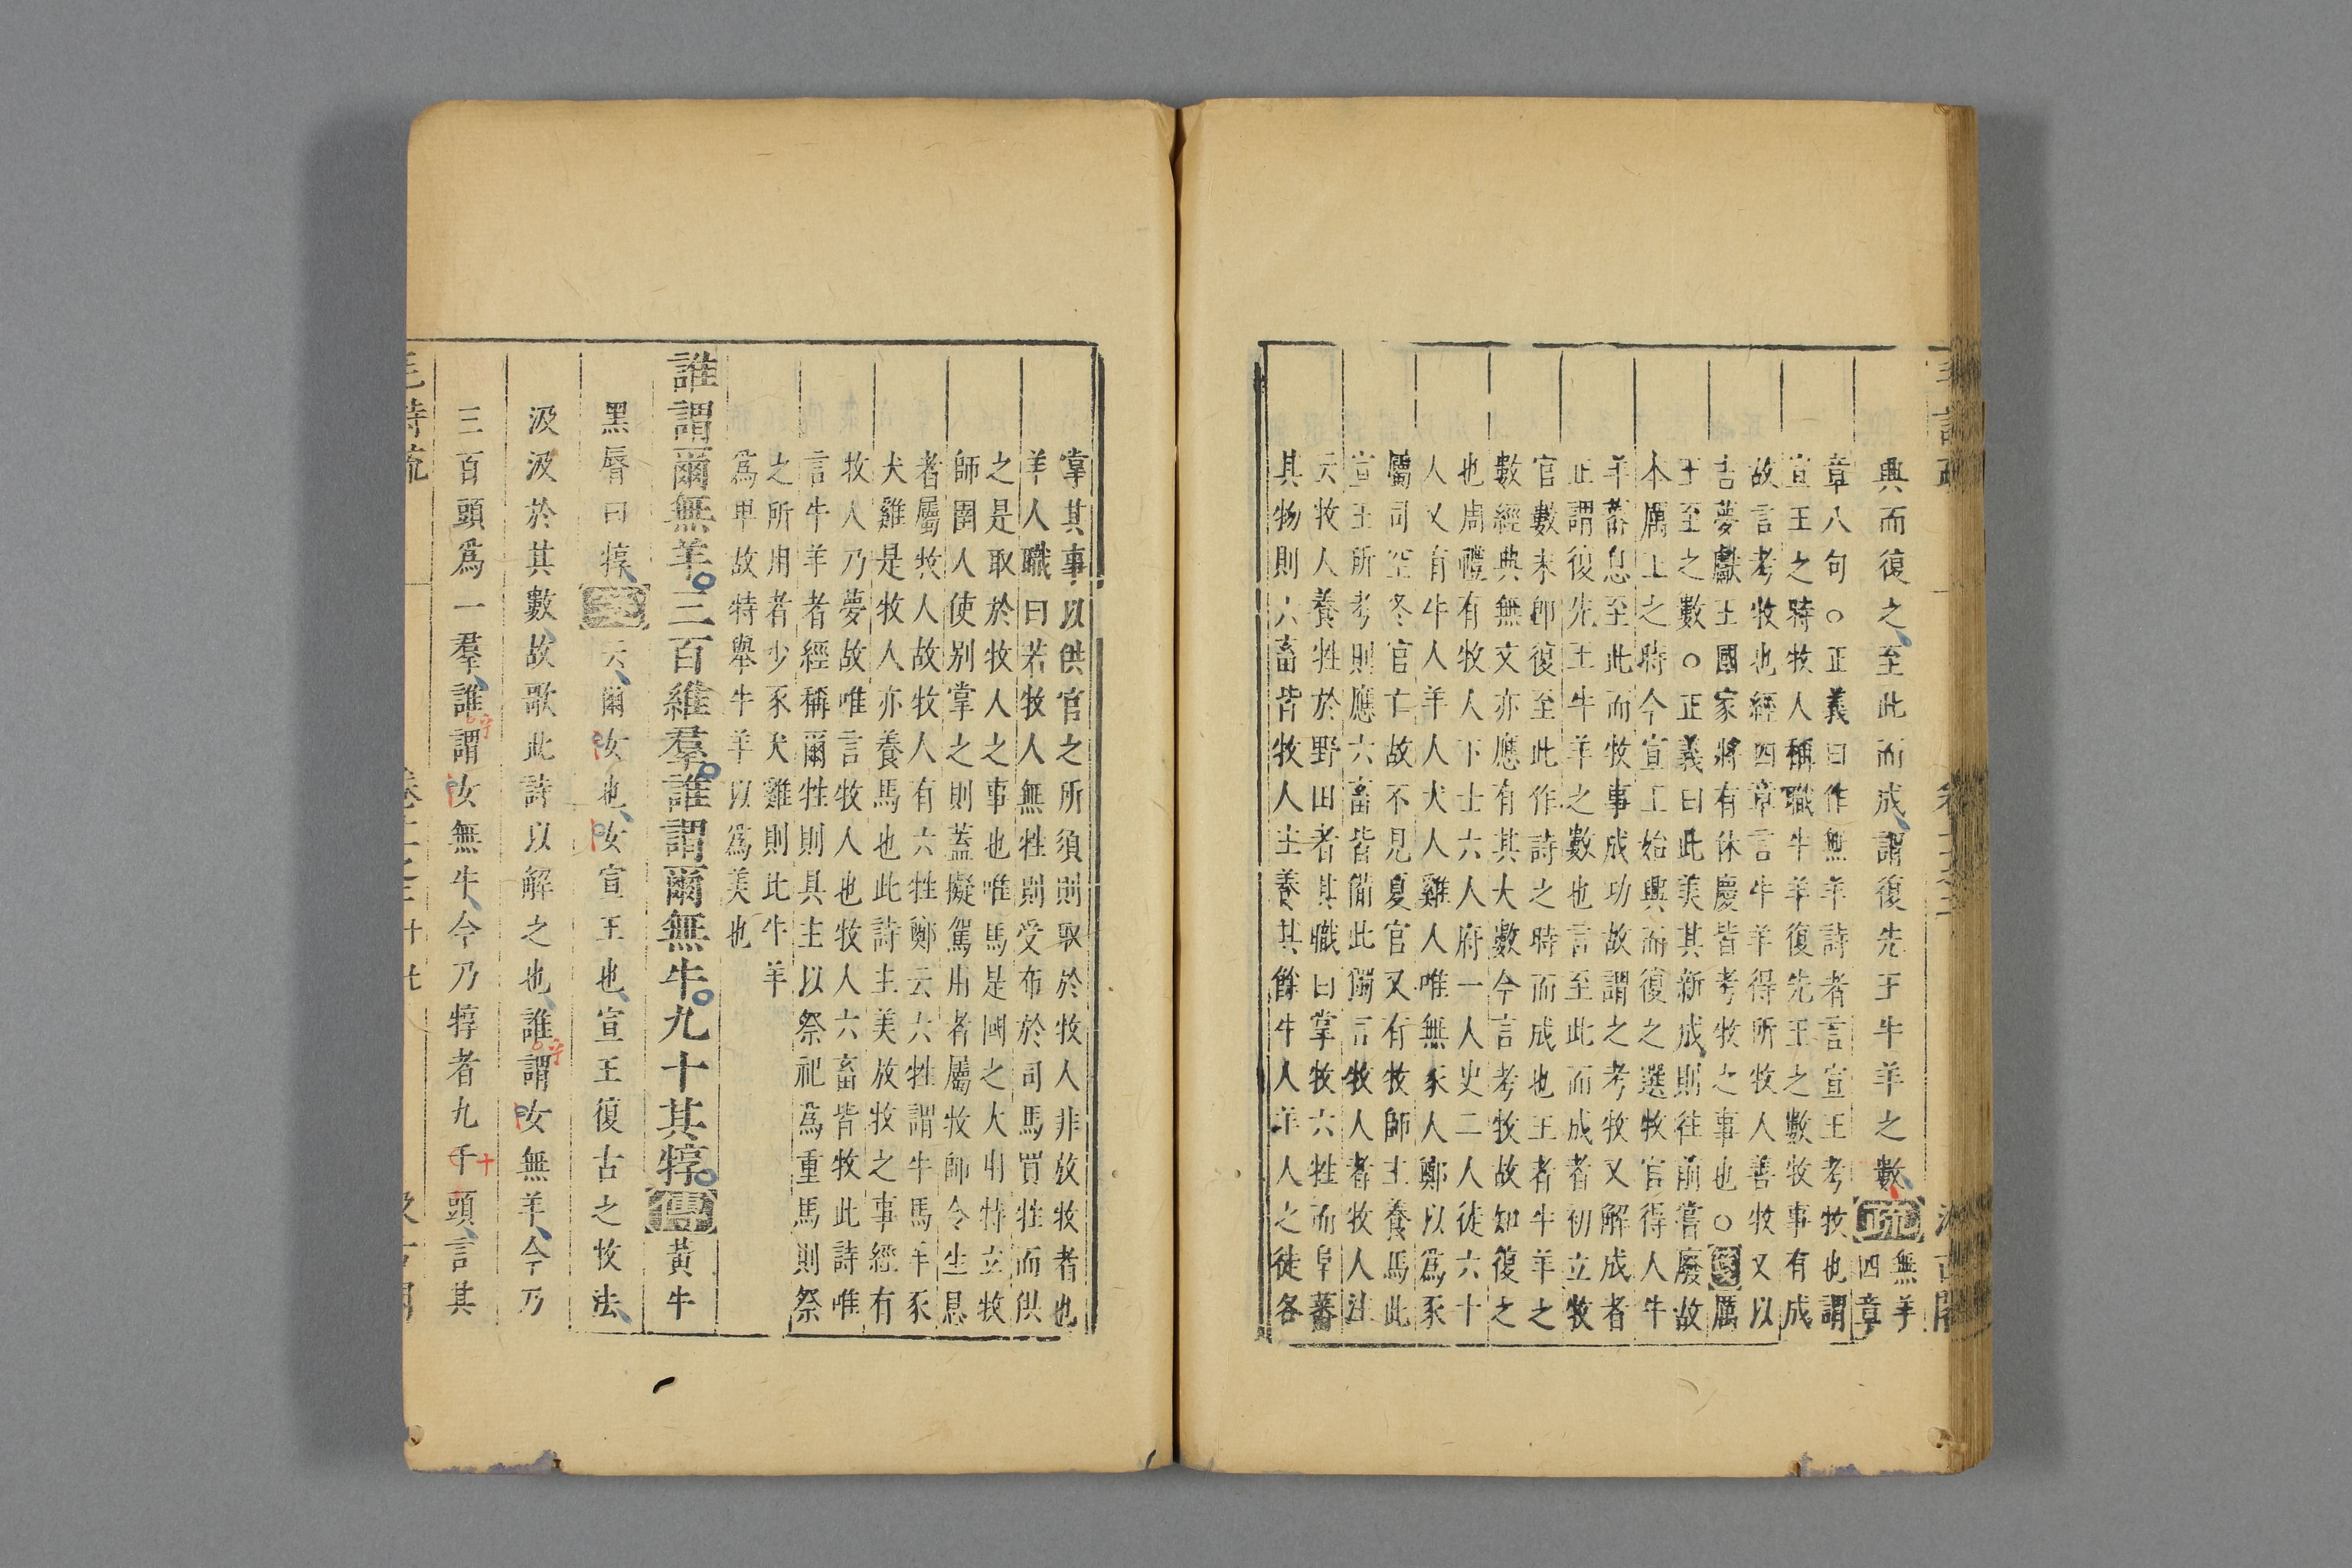 典而復之至此而成謂復先王牛羊之數疏
無羊
四章
章八句○正義曰作無羊詩者言宣王考牧也謂
宣王之時牧人稱職牛羊復先王之數牧事有成
故言考牧也經四章言牛羊得所牧人善牧又以
吉夢獻王國家將有休慶皆考牧之事也○箋厲
王至之數○正義曰此美其新成則往前嘗廢故
本厲王之時今宣王始興而復之選牧官得人牛
羊蕃息至此而牧事成功故謂之考牧又解成者
正謂復先王牛羊之數也言至此而成者初立牧
官數未卽復至此作詩之時而成也王者牛羊之
數經典無文亦應有其大數今言考牧故知復之
也周禮有牧人下士六人府一人史二人徒六十
人又有牛人羊人犬人雞人唯無豕人鄭以爲豕
屬司空冬官亡故不見夏官又有牧師主養馬此
宣王所考則應六畜皆備此獨言牧人者牧人注
云牧人養牲於野田者其職曰掌牧六牲而阜蕃
其物則六畜皆牧人主養其餘牛人羊人之徒各
掌其事以供官之所須則取於牧人非放牧者也
羊人職曰若牧人無牲則受布於司馬買牲而供
之是取於牧人之事也唯馬是國之大用特立牧
師圉人使別掌之則蓋擬駕用者屬牧師令生息
者屬牧人故牧人有六牲鄭云六牲謂牛馬羊豕
犬雞是牧人亦養馬也此詩主美放牧之事經有
牧人乃夢故唯言牧人也牧人六畜皆牧此詩唯
言牛羊者經稱爾牲則具主以祭祀爲重馬則祭
之所用者少豕犬雞則比牛羊
爲卑故特舉牛羊以爲美也
誰謂爾無羊三百維羣誰謂爾無牛九十其犉傳黃牛
黑脣曰犉箋云爾女也女宣王也宣王復古之牧法
汲汲於其數故歌此詩以解之也誰謂女無羊今乃
三百頭爲一羣誰謂女無牛今乃犉者九千頭言其
毛詩疏